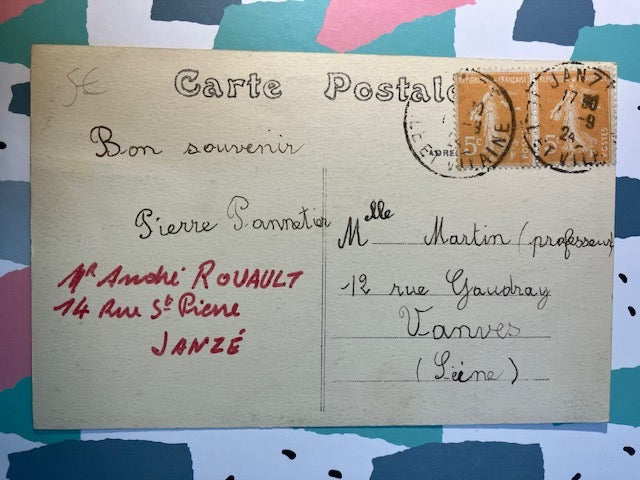 5€
Carte Postale
Bon souvenir
Pierre Pannetier
Mr André ROUAULT
14 Rue St Pierre
JANZÉ
Mlle Martin (professeur)
12 rue Gaudray
Vanves
(Seine)
JANZÉ
17 30
-9
24
ILLE ET VILAINE